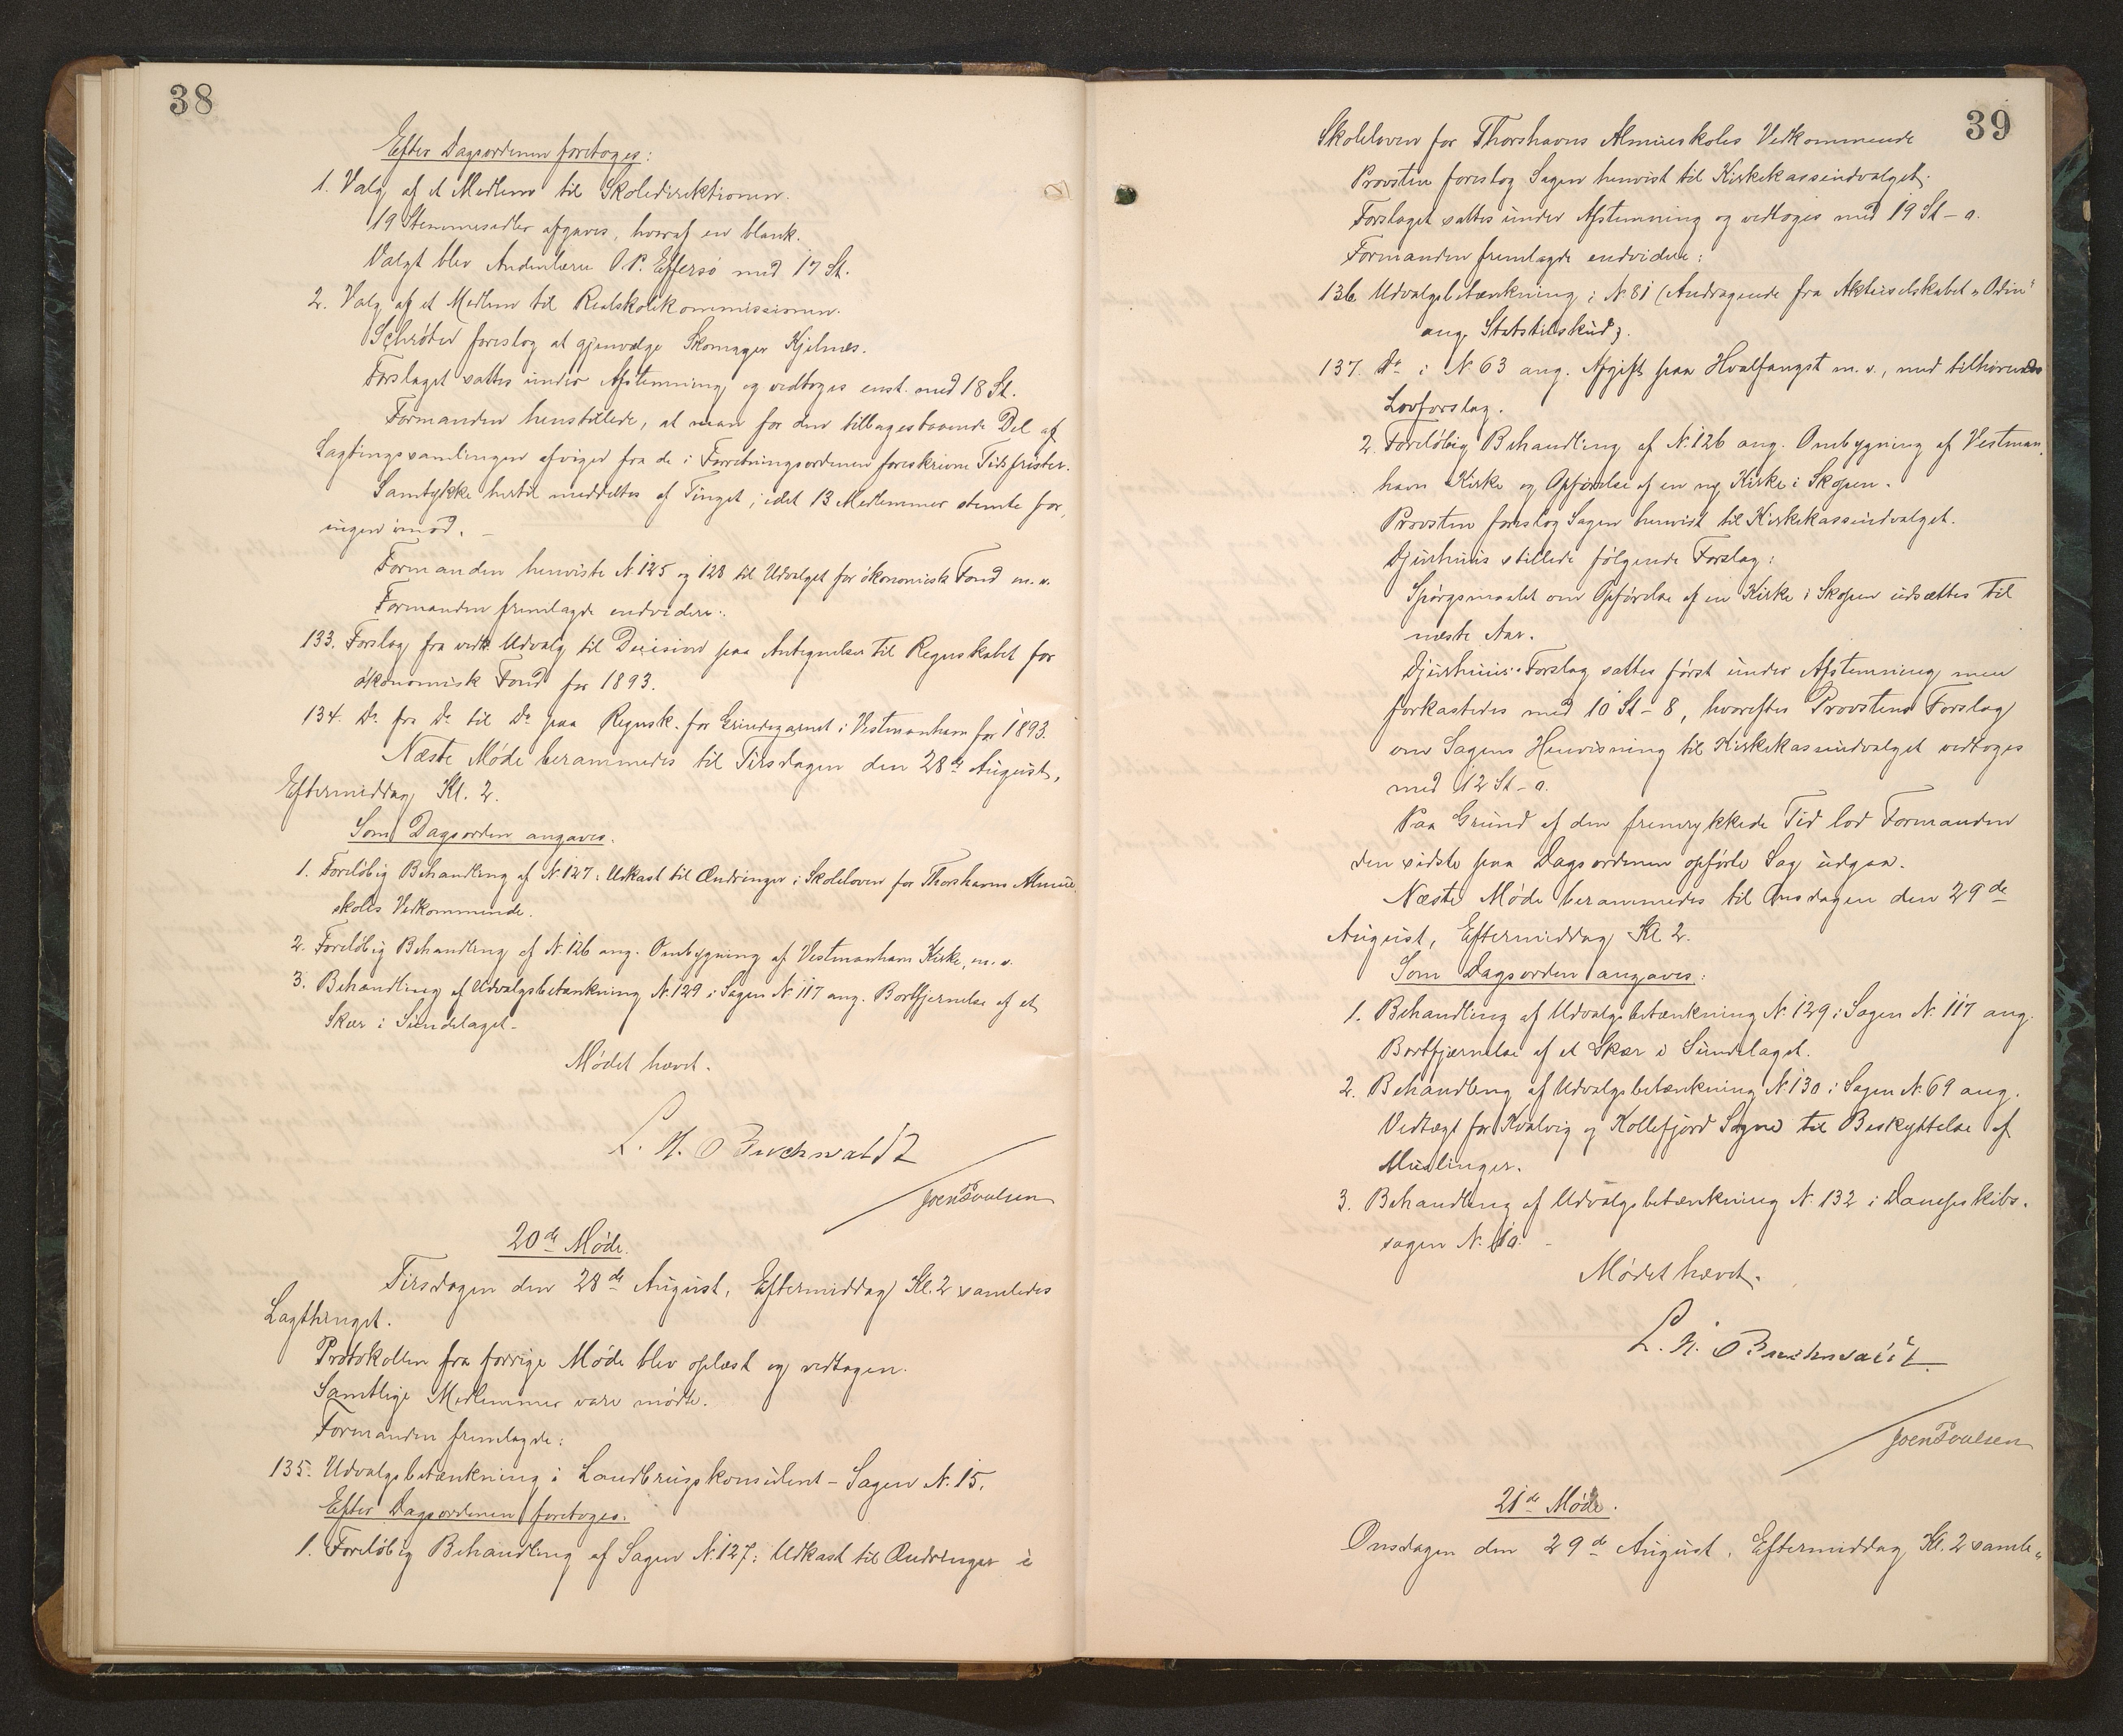 38
Efter Dagsordenen foretoges:
1. Valg af et Medlem til Skoledirektionen.
19 Stemmesedler afgaves, hvoraf en blank.
Valgt blev Andenlærer O. P. Effersö med 17 St.
2. Valg af et Medlem til Realskolekommissionen.
Schrøter foreslog at gjenvælge Skomager Kjelnæs.
Forslaget sattes under Afstemning og vedtoges enst. med 18 St.
Formanden henstillede, at man for den tilbagestaaende Del af
Lagtingssamlingen afviger fra de i Forretningsordenen foreskrevne Tidsfrister.
Samtykke hertil meddeltes af Tinget, idet 13 Medlemmer stemte for,
ingen imod. –
Formanden henviste N. 125 og 128 til Udvalget for økonomisk Fond m. v.
Formanden fremlagde endvidere:
133. Forslag fra vedk. Udvalg til Decision paa Antegnelser til Regnskabet for
økonomisk Fond for 1893.
134. Do. fra Do. til Do. paa Regnsk. for Grindegarnet i Vestmanhavn for 1893.
Næste Møde berammedes til Tirsdagen den 28de August,
Eftermiddag Kl. 2.
Som Dagsorden angaves.
1. Foreløbig Behandling af N. 127: Udkast til Ændringer i Skoleloven for Thorshavns Almue
skoles Vedkommende.
2. Foreløbig Behandling af N. 126 ang. Ombygning af Vestmanhavn Kirke, m. v.
3. Behandling af Udvalgsbetænkning N. 129 i Sagen N. 117 ang. Bortfjernelse af et
Skær i Sundelaget.
Mødet hævet.
L. N. Buchwaldt
Joen Poulsen
20de Møde.
Tirsdagen den 28de August, Eftermiddag Kl. 2 samledes
Lagthinget.
Protokollen fra forrige Møde blev oplæst og vedtagen.
Samtlige Medlemmer vare mødte.
Formanden fremlagde:
135. Udvalgsbetænkning i Landbrugskonsulent-Sagen N. 15.
Efter Dagsordenen foretoges.
1. Foreløbig Behandling af Sagen N. 127: Udkast til Ændringer i
39
Skoleloven for Thorshavns Almueskoles Vedkommende
Provsten foreslog Sagen henvist til Kirkekasseudvalget.
Forslaget sattes under Afstemning og vedtoges med 19 St – 0.
Formanden fremlagde endvidere:
136 Udvalgsbetænkning i N. 81 (Andragende fra Aktieselskabet „Odin"
ang. Statstilskud).
137. Do. i N. 63 ang. Afgift paa Hvalfangst m. v., med tilhørende
Lovforslag.
2. Foreløbig Behandling af N. 126 ang. Ombygning af Vestman-
havn Kirke og Opførelse af en ny Kirke i Skopen.
Provsten foreslog Sagen henvist til Kirkekasseudvalget.
Djurhuus stillede følgende Forslag:
Spørgsmaalet om Opførelse af en Kirke i Skopen udsættes til
næste Aar.
Djurhuus' Forslag sattes først under Afstemning, men
forkastedes med 10 St – 8, hvorefter Provstens Forslag
om Sagens Henvisning til Kirkekasseudvalget vedtoges
med 12 St – 0.
Paa Grund af den fremrykkede Tid lod Formanden
den sidste paa Dagsordenen opførte Sag udgaa.
Næste Møde berammedes til Onsdagen den 29de
August, Eftermiddag Kl 2.
Som Dagsorden angaves:
1. Behandling af Udvalgsbetænkning N. 129 i Sagen N. 117 ang.
Bortfjernelse af et Skær i Sundelaget.
2. Behandling af Udvalgsbetænkning N. 130 i Sagen N. 69 ang.
Vedtægt for Kvalvig og Kollefjord Sogne til Beskyttelse af
Muslinger.
3. Behandling af Udvalgsbetænkning N. 132 i Dampskibs-
sagen N.
Mødet hævet.
L. N. Buchwaldt
Joen Poulsen
21de Møde.
Onsdagen den 29de August, Eftermiddag Kl. 2 samle-